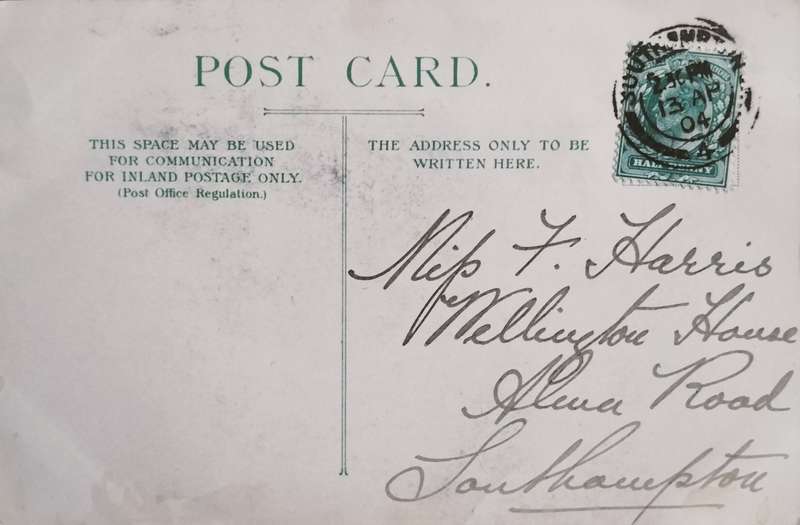 POST CARD.
THIS SPACE MAY BE USED
FOR COMMUNICATION
FOR INLAND POSTAGE ONLY.
(Post Office Regulation.)
THE ADDRESS ONLY TO BE
WRITTEN HERE.
SOUTHAMPTON
PM
13 AP
04
4
HALFPENNY
Miss F. Harris
Wellington House
Alma Road
Southampton